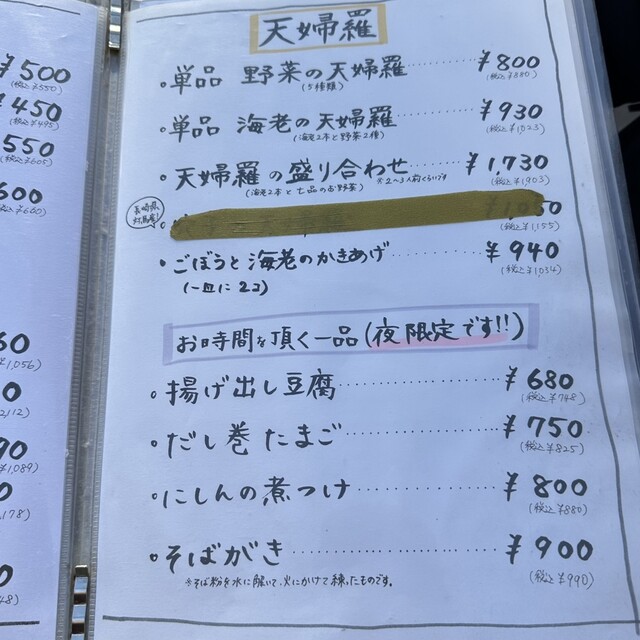 ¥500
(税込¥550)
¥450
(税込¥495)
550
(税込¥605)
600
(税込¥660)
60
¥1,056)
0
2,112)
90
¥1,089)
0
,178)
0
48)
天婦羅
・単品 野菜の天婦羅 ¥800
(5種類) (税込¥880)
・単品 海老の天婦羅 ¥930
(海老2本と野菜2種) (税込¥1,023)
・天婦羅の盛り合わせ ※2〜3人前くらいです ¥1,730
(海老2本と七品のお野菜) (税込¥1,903)
長崎県対馬産!
¥1,050
(税込¥1,155)
・ごぼうと海老のかきあげ ¥940
(一皿に2コ) (税込¥1,034)
お時間を頂く一品(夜限定です!!)
・揚げ出し豆腐 ¥680
(税込¥748)
・だし巻たまご ¥750
(税込¥825)
・にしんの煮つけ ¥800
(税込¥880)
・そばがき ¥900
※そば粉を水に解いて、火にかけて練ったものです。 (税込¥990)